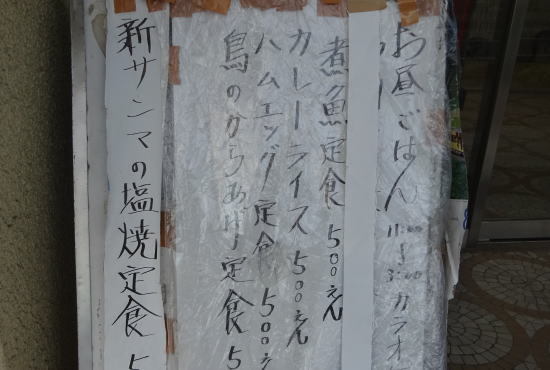 お昼ごはん 11:00~3:00 カラオ
煮魚定食 500えん
カレーライス 500えん
ハムエッグ定食 500え
鳥のからあげ定食 5
新サンマの塩焼定食 5